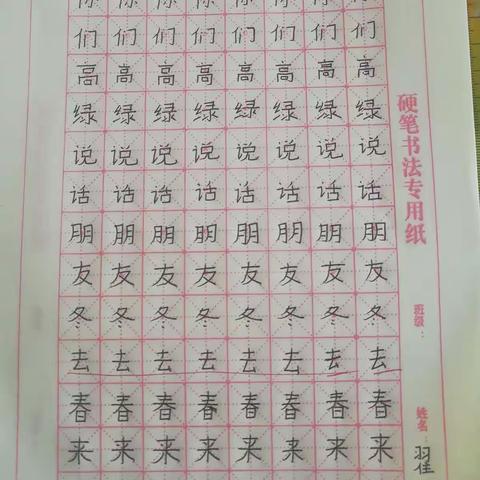 你你你你你你你你
们们们们们们们们
高高高高高高高高
绿绿绿绿绿绿绿绿
说说说说说说说说
话话话话话话话话
朋朋朋朋朋朋朋朋
友友友友友友友友
冬冬冬冬冬冬冬冬
去去去去去去去去
春春春春春春春春
来来来来来来来来
硬笔书法专用纸
班级：
姓名：翟